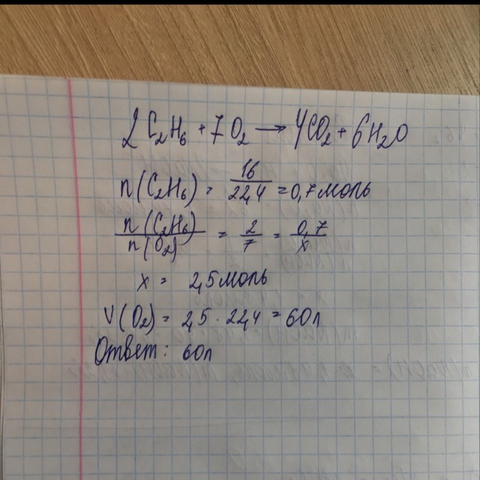 2C₂H₆ + 7O₂ → 4CO₂ + 6H₂O
n(C₂H₆) = 16/22,4 = 0,7 моль
n(C₂H₆)/n(O₂) = 2/7 = 0,7/x
x = 2,5 моль
V(O₂) = 2,5 · 22,4 = 60л
Ответ: 60л